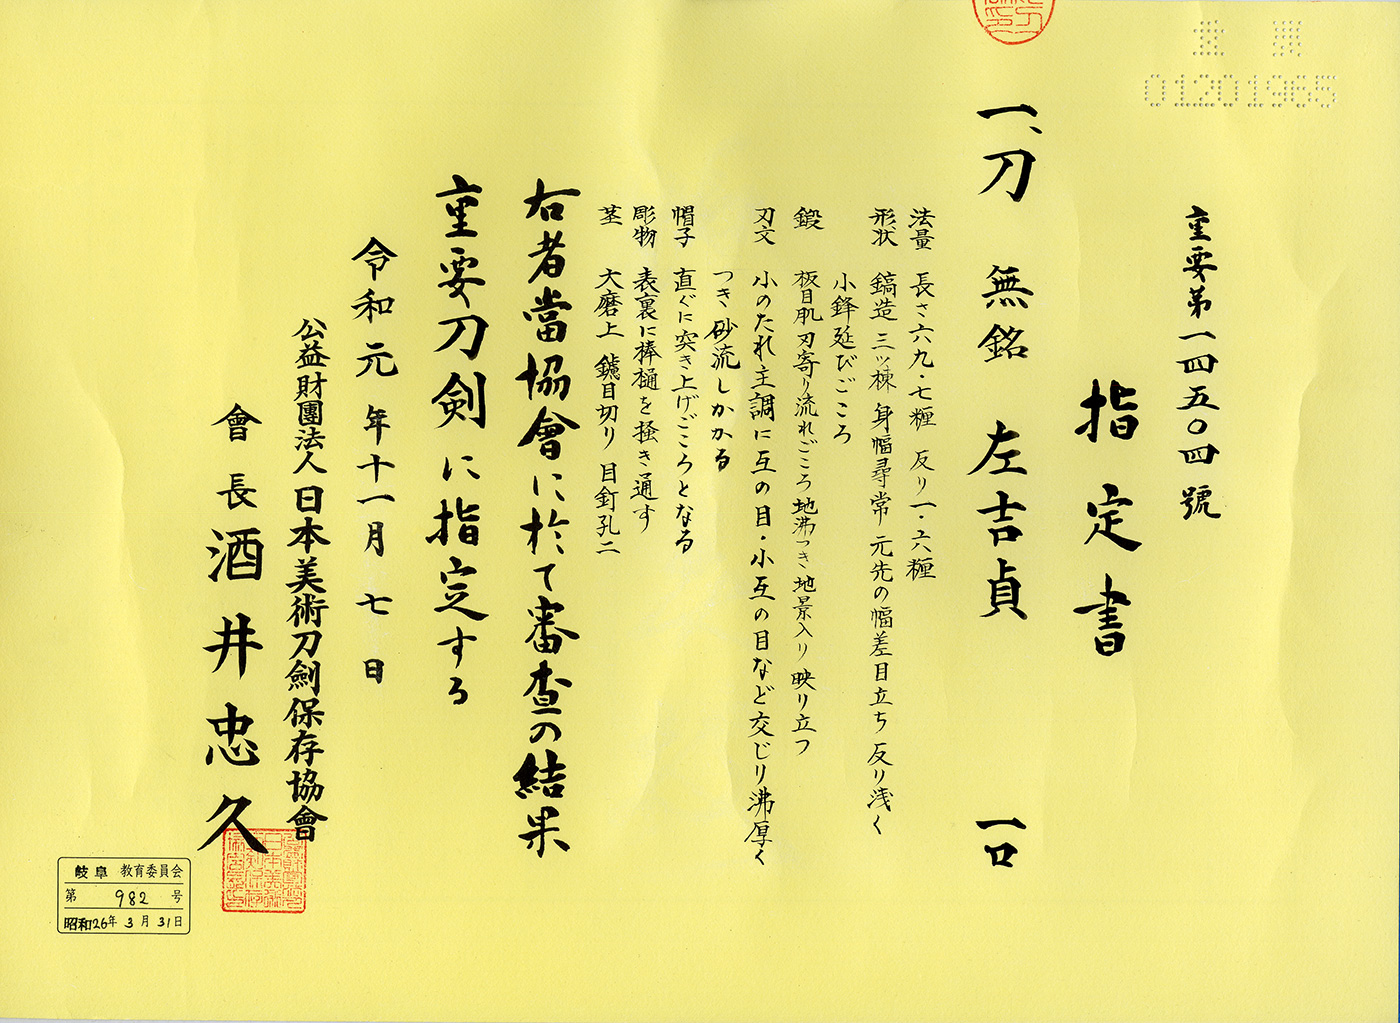 重要
01201965
重要第一四五〇四號
指定書
一、刀 無銘 左吉貞 一口
法量 長さ六九・七糎 反り一・六糎
形状 鎬造 三ッ棟 身幅尋常 元先の幅差目立ち 反り浅く
小鋒延びごころ
鍛 板目肌 刃寄り流れごころ 地沸つき 地景入り 映り立つ
刃文 小のたれ主調に互の目・小互の目など交じり 沸厚く
つき 砂流しかかる
帽子 直ぐに突き上げごころとなる
彫物 表裏に棒樋を掻き通す
茎 大磨上 鑢目切り 目釘孔二
右者當協會に於て審査の結果
重要刀剣に指定する
令和元年十一月七日
公益財團法人日本美術刀劍保存協會
會長 酒井忠久
岐阜 教育委員会
第 982 号
昭和26年3月31日